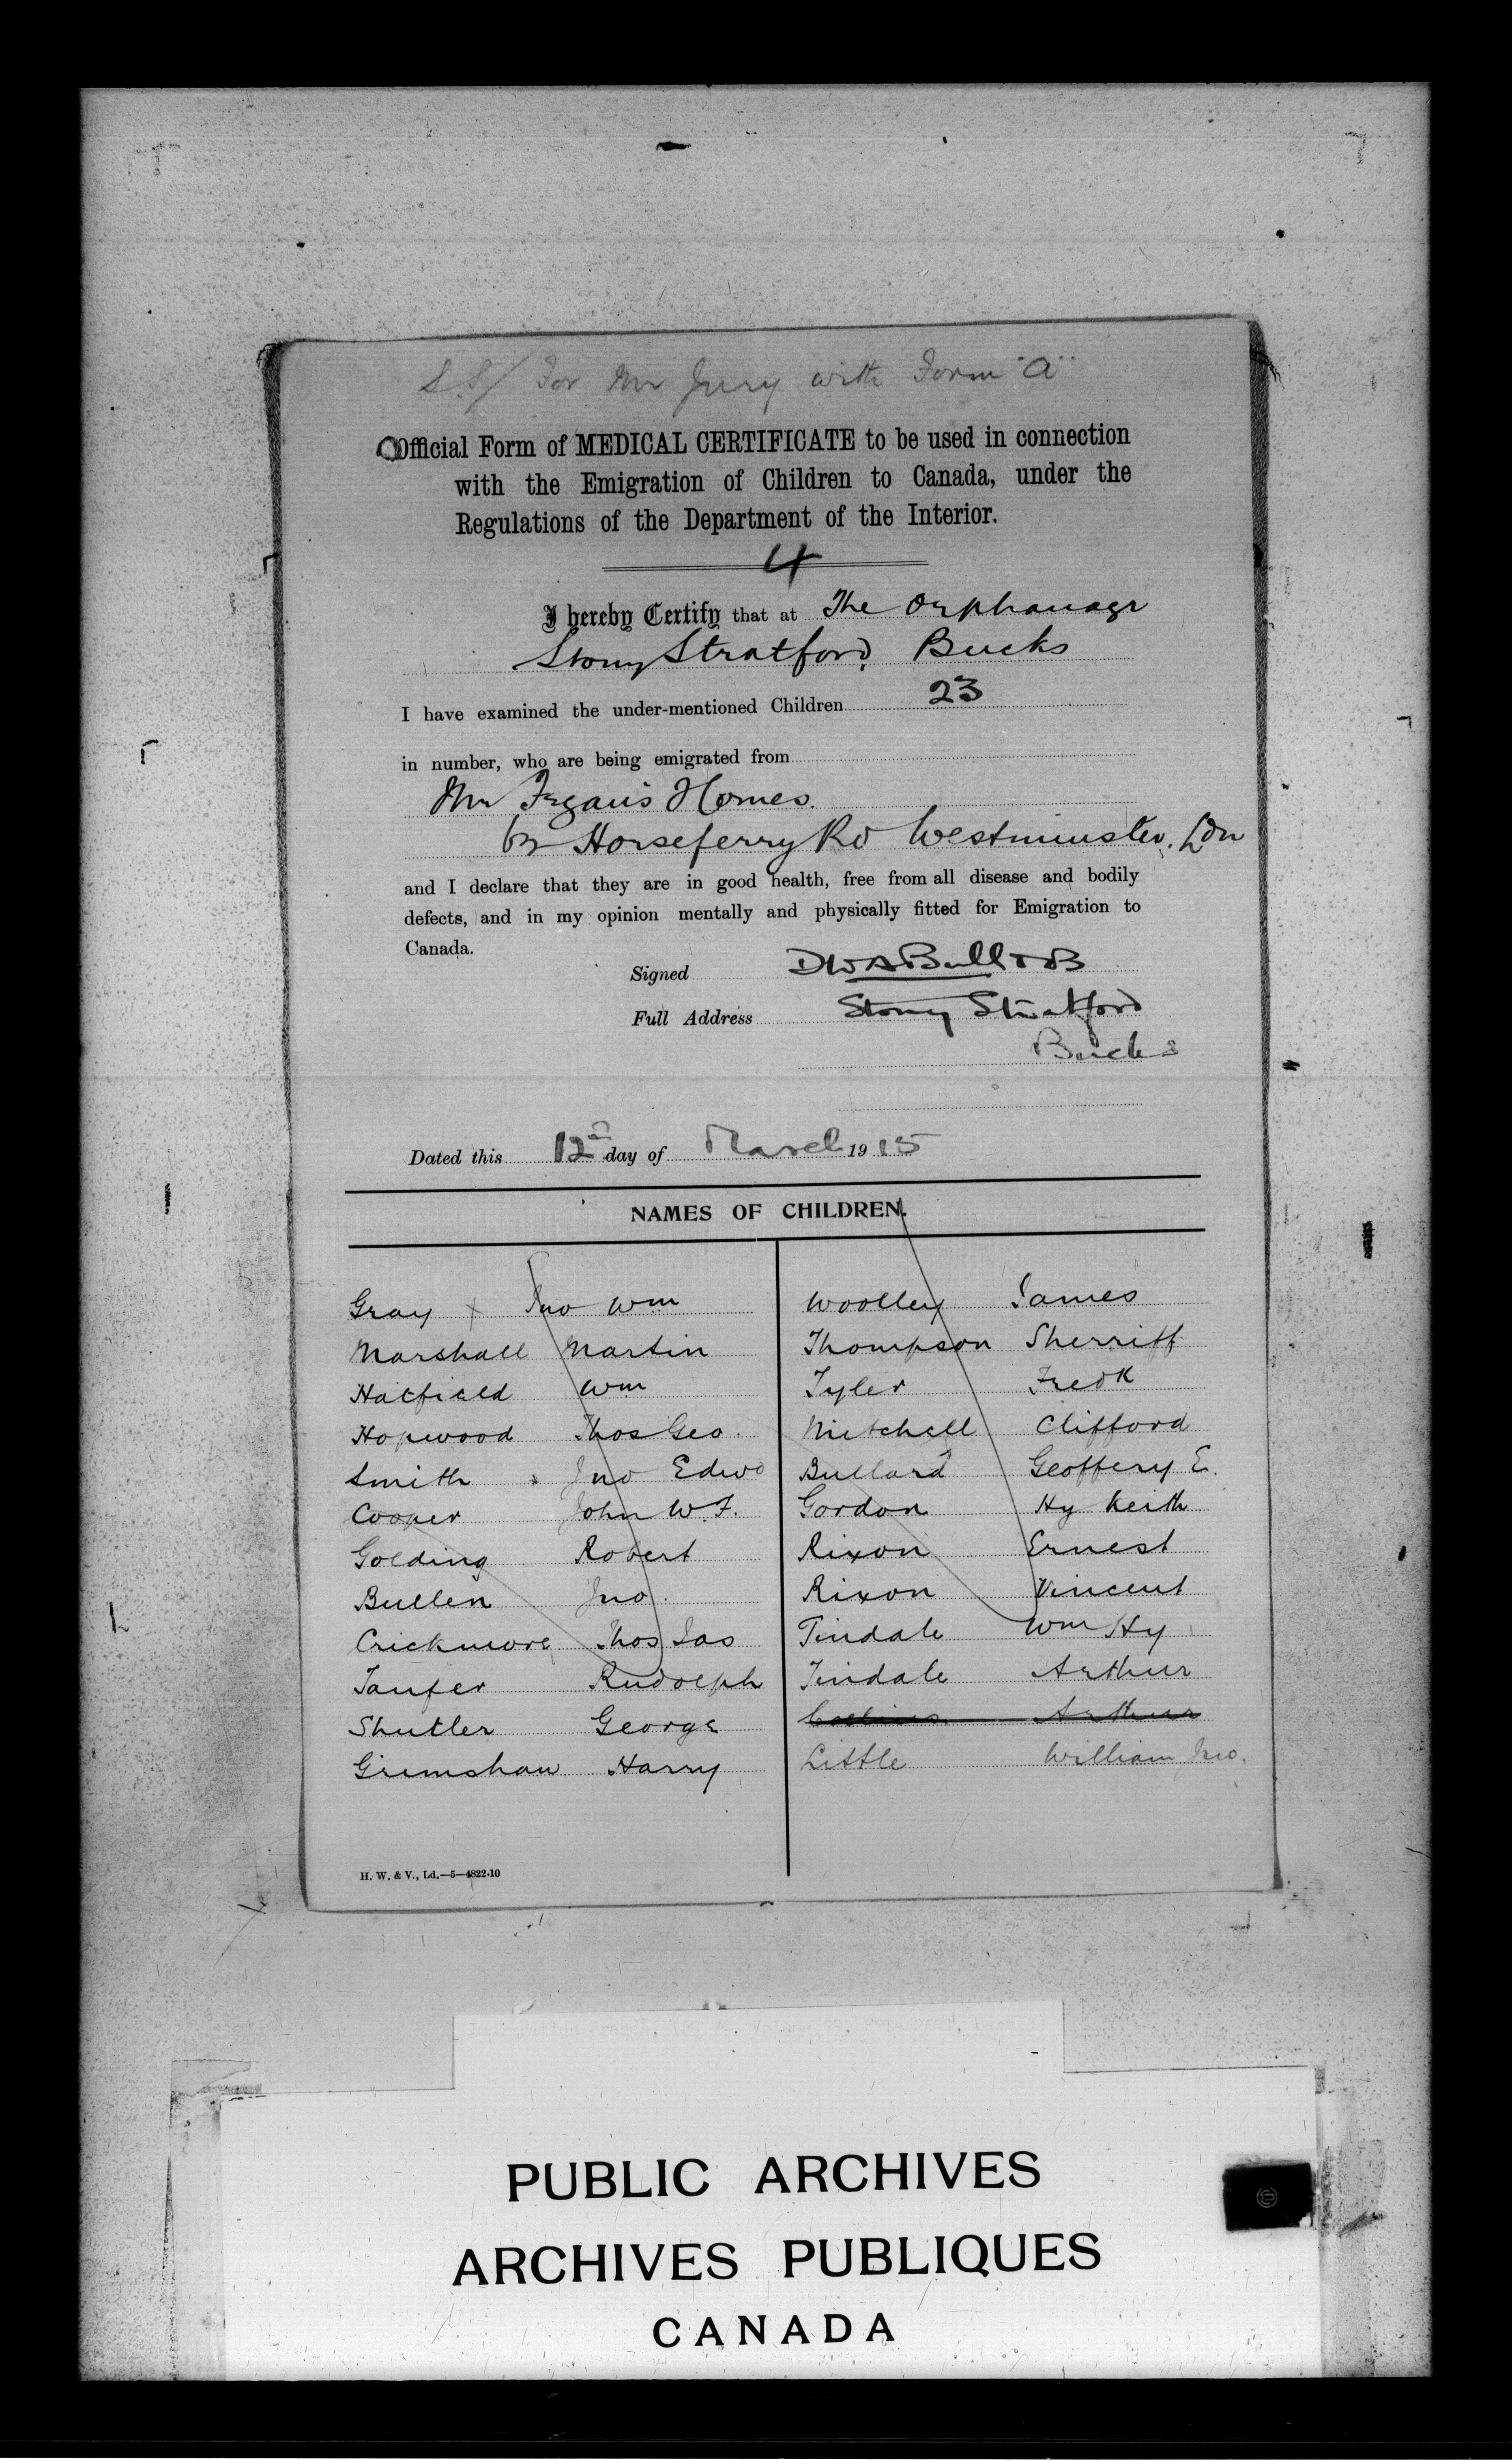 S.S/ For Mr Jury with Form "A"
Official Form of MEDICAL CERTIFICATE to be used in connection
with the Emigration of Children to Canada, under the
Regulations of the Department of the Interior.
4
I hereby Certify that at The Orphanage
Stony Stratford, Bucks
I have examined the under-mentioned Children 23
in number, who are being emigrated from
Mr Fegan's Homes.
Horseferry Rd Westminster. Ldn
and I declare that they are in good health, free from all disease and bodily
defects, and in my opinion mentally and physically fitted for Emigration to
Canada.
Signed DWABull
Full Address Stony Stratford
Bucks
Dated this 12th day of March 1915
NAMES OF CHILDREN.
Gray x Jno Wm
Marshall Martin
Hatfield Wm
Hopwood Thos Geo.
Smith x Jno Edwd
Cooper John W.F.
Golding Robert
Bullen Jno.
Crickmore Thos Jas
Taufer Rudolph
Shutler George
Grimshaw Harry
Woolley James
Thompson Sherriff
Tyler Fredk
Mitchell Clifford
Bullard Geoffery E.
Gordon Hy Keith
Rixon Ernest
Rixon Vincent
Tindale Wm Hy
Tindale Arthur
Collins Arthur
Little William Jno.
H. W. & V., Ld.—5—4822-10
PUBLIC ARCHIVES
ARCHIVES PUBLIQUES
CANADA